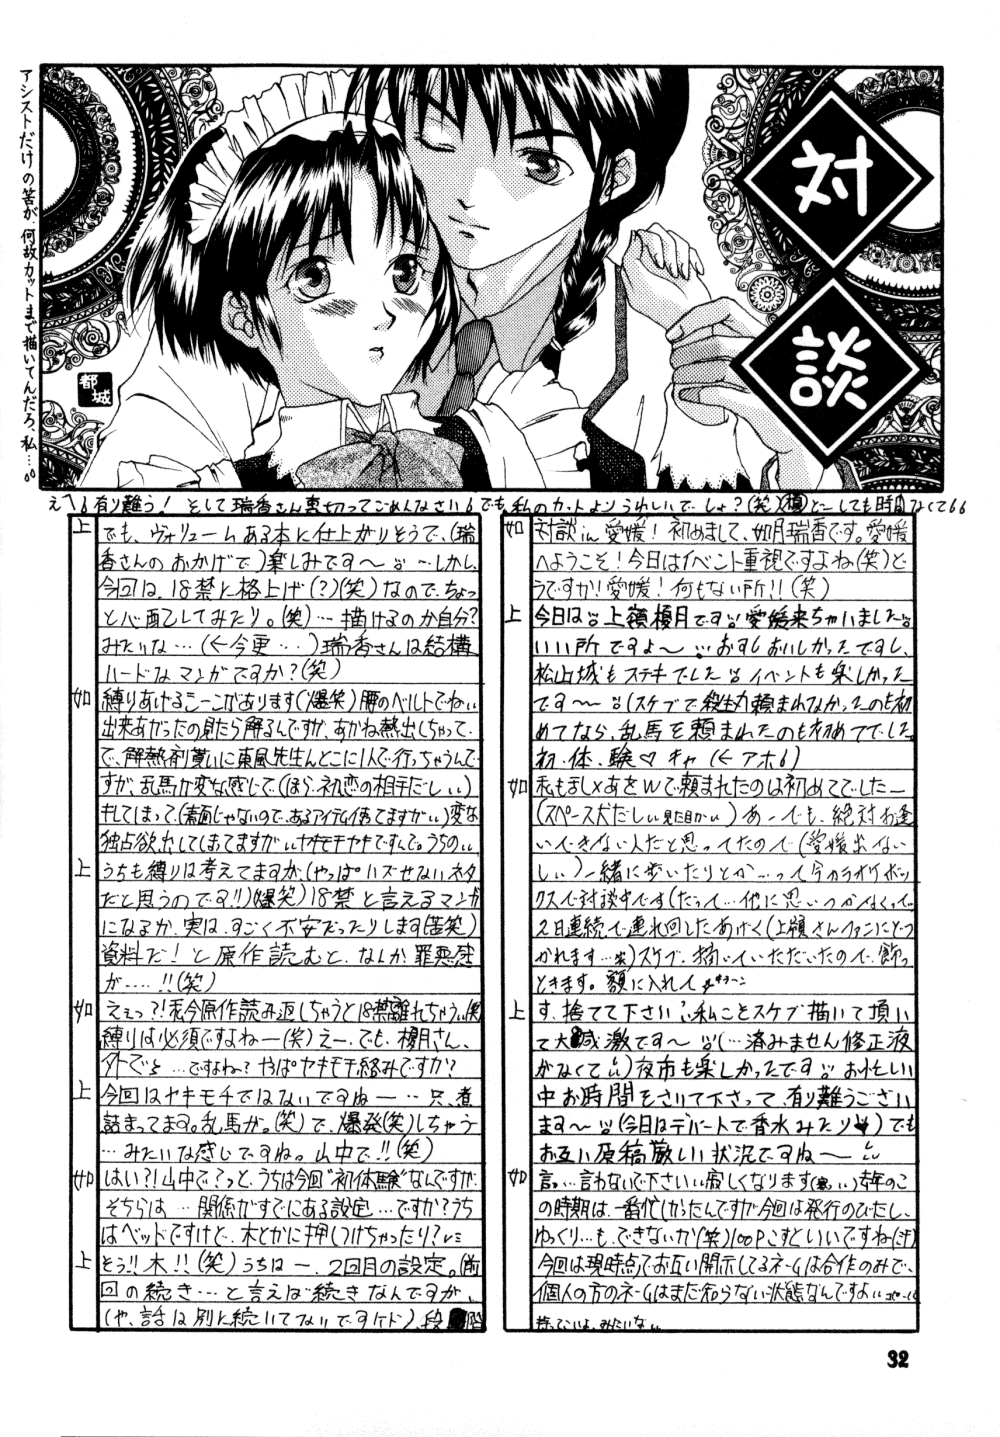 対談
アシストだけの筈が、何故カットまで描いてんだろ、私…。。
都城
え〜。有り難う! そして瑞香さん裏切ってごめんなさい。でも、私のカットよりうれしいでしょ?(笑)
如
対談in愛媛! 初めまして、如月瑞香です。愛媛
へようこそ!今日はイベント重視ですよね(笑)ど
うですか!愛媛!何もない所!!(笑)
上
今日は。上嶺櫻月です。愛媛来ちゃいました。
いい所ですよ〜 おすしおいしかったですし、
松山城もステキでした。イベントも楽しかった
です〜(スケブで殺生丸頼まれなかったのも初
めてなら、乱馬を頼まれたのも初めてでした。
初・体・験♡ キャ(←アホ。)
如
私も乱×あをWで頼まれたのは初めてでしたー
あーでも、絶対お逢
いできない人だと思ってたので(愛媛出ない
し)一緒に歩いたりとか…って今カラオケボッ
クスで対談中です(だって…他に思いつかなくって
2日連続で連れ回したあげく(上嶺さんファンにどつ
かれます…笑)スケブ、描いていただいたので、飾っ
ときます。額に入れて
上
す、捨てて下さい、私ことスケブ描いて頂い
て大感激です〜(…済みません修正液
がなくて)夜市も楽しかったです お忙しい
中お時間をさいて下さって、有り難うござい
ます〜(今日はデパートで香水みたり)でも
お互い原稿厳しい状況ですね〜
如
言っ…言わないで下さい 寂しくなります
の時期は、一番代(かったんですが今回は発行のびたし、
ゆっくり…も、できないか(笑)100Pこすといいですね
今回は現時点でお互い開示してるネームは合作のみで、
個人の方のネームはまだ知らない状態なんですよ
上
でも、ヴォリュームある本に仕上がりそうで、(瑞
香さんのおかげで)楽しみです〜 …しかし、
今回は、18禁に格上げ(?)(笑)なので、ちょっ
と心配してみたり。(笑)…描けるのか自分?
みたいな…(←今更…)瑞香さんは結構
ハードなマンガですか?(笑)
如
縛りあげるシーンがあります(爆笑)腰のベルトでね
出来あがったの見たら解るんですが、あかね熱出しちゃって、
で、解熱剤貰いに東風先生んとこに1人で行っちゃうんで
すが、乱馬が変な感じで(ほら、初恋の相手だしぃ)
キレてしまって(素面じゃないので、あるアイテム使ってますが)変な
独占欲出してしまってますが ヤキモチヤキですんで。うちの
上
うちも縛りは考えてますが、(やっぱハズせないネタ
だと思うのです!!)(爆笑)18禁と言えるマンガ
になるか、実は、すごく不安だったりします(苦笑)
資料だ!と原作読むと、なんか罪悪感
が……!!(笑)
如
えぇっ?!私今原作読み返しちゃうと18禁離れちゃう(笑)
縛りは必須ですよねー(笑)えー、でも、櫻月さん、
外で…ですよね?やっぱヤキモチ絡みですか?
上
今回はヤキモチではないですねー…只、煮
詰まってます。乱馬が。(笑)で、爆発(笑)しちゃう
…みたいな感じですね。山中で!!(笑)
如
はい?!山中で?っと、うちは今回“初体験”なんですが、
そちらは…関係がすでにある設定…ですか?うち
はベッドですけど、木とかに押しつけちゃったり?
上
そう!!木!!(笑)うちはー、2回目の設定。(前
回の続き…と言えば続きなんですが、
(や、話は別に続いてないですケド)、段階
32